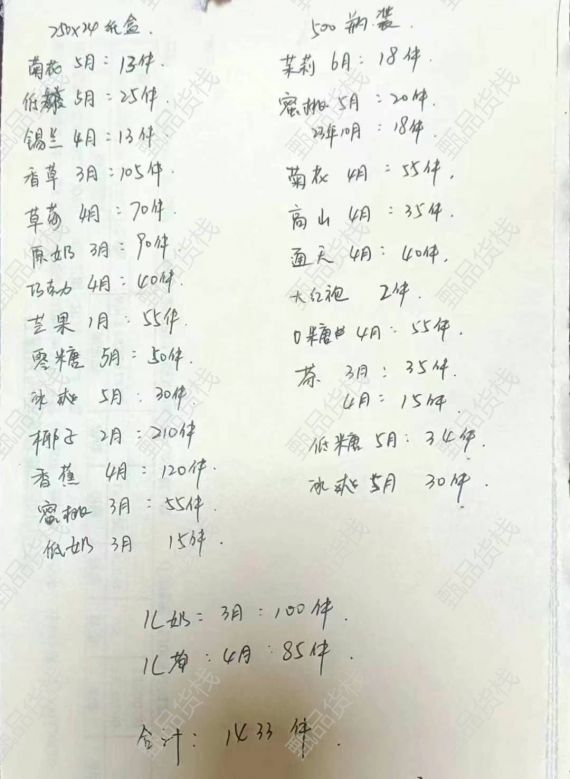 250x24 纸盒.
菊花 5月：13件.
低糖 5月：25件.
锡兰 4月：13件
香草 3月：105件.
草莓 4月：70件.
原奶 3月：90件.
巧克力 4月：40件.
芒果 1月：55件.
零糖 5月：50件.
冰爽 5月. 30件.
椰子 2月：210件
香蕉 4月：120件.
蜜桃 3月：55件.
低奶 3月 15件.
500 瓶装.
茉莉 6月：18件.
蜜桃 5月：20件.
23年10月：18件.
菊花 4月：55件.
高山 4月：35件.
通天 4月：40件.
大红袍 2件.
0糖 4月：55件.
茶 3月：35件.
4月：15件.
低糖 5月：34件.
冰爽 5月 30件.
1L奶：3月：100件.
1L草：4月：85件.
合计：1433件.
甄品货栈